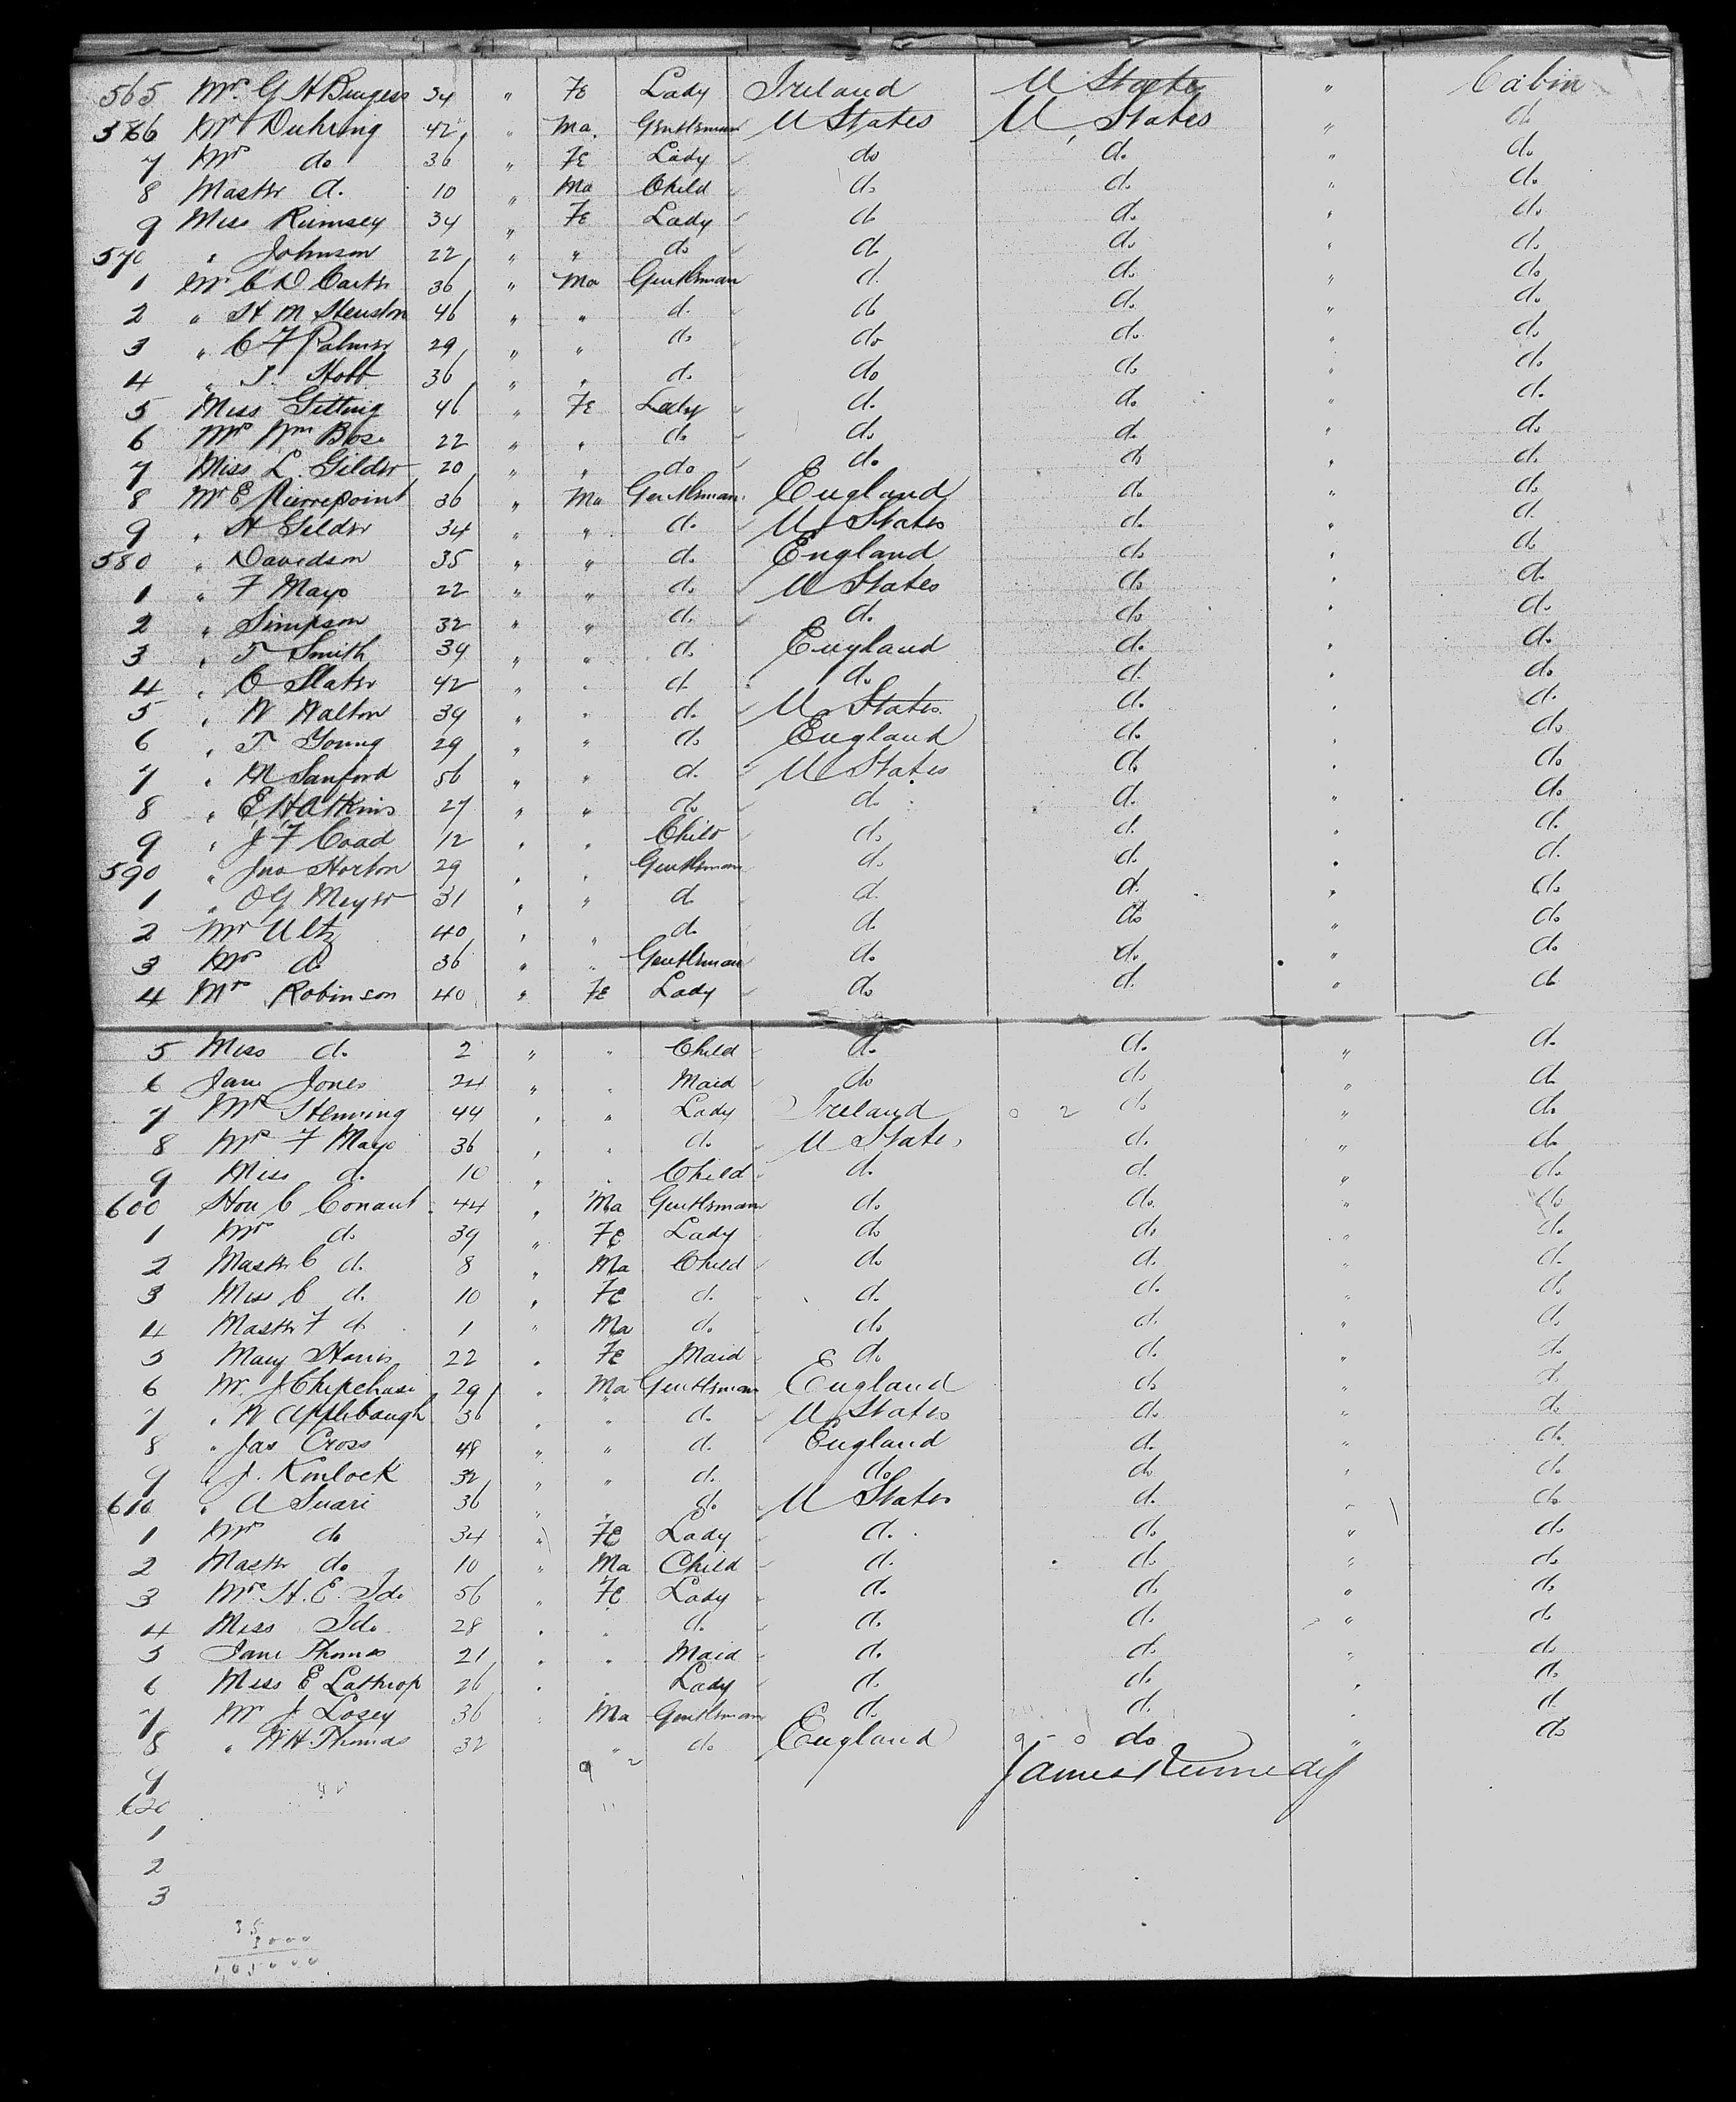 565 Mrs. G H Burgess 34 " Fe Lady Ireland U States " Cabin
566 Mr Duhring 42 " Ma. Gentleman U States U States " do
7 Mrs do 36 " Fe Lady do do " do
8 Master do 10 " Ma Child do do " do
9 Miss Rumsey 34 " Fe Lady do do " do
570 " Johnson 22 " " do do do " do
1 Mr C D Carter 36 " Ma Gentleman do do " do
2 " H M Stenston 46 " " do do do " do
3 " C F Palmer 29 " " do do do " do
4 " J. Hoff 36 " " do do do " do
5 Miss Gitting 46 " Fe Lady do do " do
6 Mrs Wm Bose 22 " " do do do " do
7 Miss L. Gilder 20 " " do do do " do
8 Mr E Pierrepoint 36 " Ma Gentleman England do " do
9 " H Gilder 34 " " do U States do " do
580 " Davidson 35 " " do England do " do
1 " F Mayo 22 " " do U States do " do
2 " Simpson 32 " " do do do " do
3 " T Smith 39 " " do England do " do
4 " C Slater 42 " " do do do " do
5 " W Walton 39 " " do U States do " do
6 " T Young 29 " " do England do " do
7 " M Sanford 56 " " do U States do " do
8 " E H Atkins 27 " " do do do " do
9 " J F Coad 12 " " Child do do " do
590 " Jno Horton 29 " " Gentleman do do " do
1 " O G Meyer 31 " " do do do " do
2 Mr Ultz 40 " " do do do " do
3 Mrs do 36 " " Gentleman do do " do
4 Mrs Robinson 40 " Fe Lady do do " do
5 Miss do. 2 " " Child do do " do
6 Jane Jones 24 " " Maid do do " do
7 Mrs Stenning 44 " " Lady Ireland do " do
8 Mrs F Mayo 36 " " do U States do " do
9 Miss do 10 " " Child do do " do
600 Hon C Conant 44 " Ma Gentleman do do " do
1 Mrs do 39 " Fe Lady do do " do
2 Master C do 8 " Ma Child do do " do
3 Miss C do 10 " Fe do do do " do
4 Master F do 1 " Ma do do do " do
5 Mary Harris 22 " Fe Maid do do " do
6 Mr. J Chipchase 29 " Ma Gentleman England do " do
7 " W Applebaugh 36 " " do U States do " do
8 " Jas Cross 48 " " do England do " do
9 " J. Kinlock 32 " " do do do " do
610 " A Suari 36 " " do U States do " do
1 Mrs do 34 " Fe Lady do do " do
2 Master do 10 " Ma Child do do " do
3 Mrs H. E. Ide 56 " Fe Lady do do " do
4 Miss Ide 28 " " do do do " do
5 Jane Thomas 21 " " Maid do do " do
6 Miss E Lathrop 26 " " Lady do do " do
7 Mr J Losey 36 " Ma Gentleman do do " do
8 " W H Thomas 32 " do England do " do
9 James Kennedy
620
1
2
3
35
3000
105000